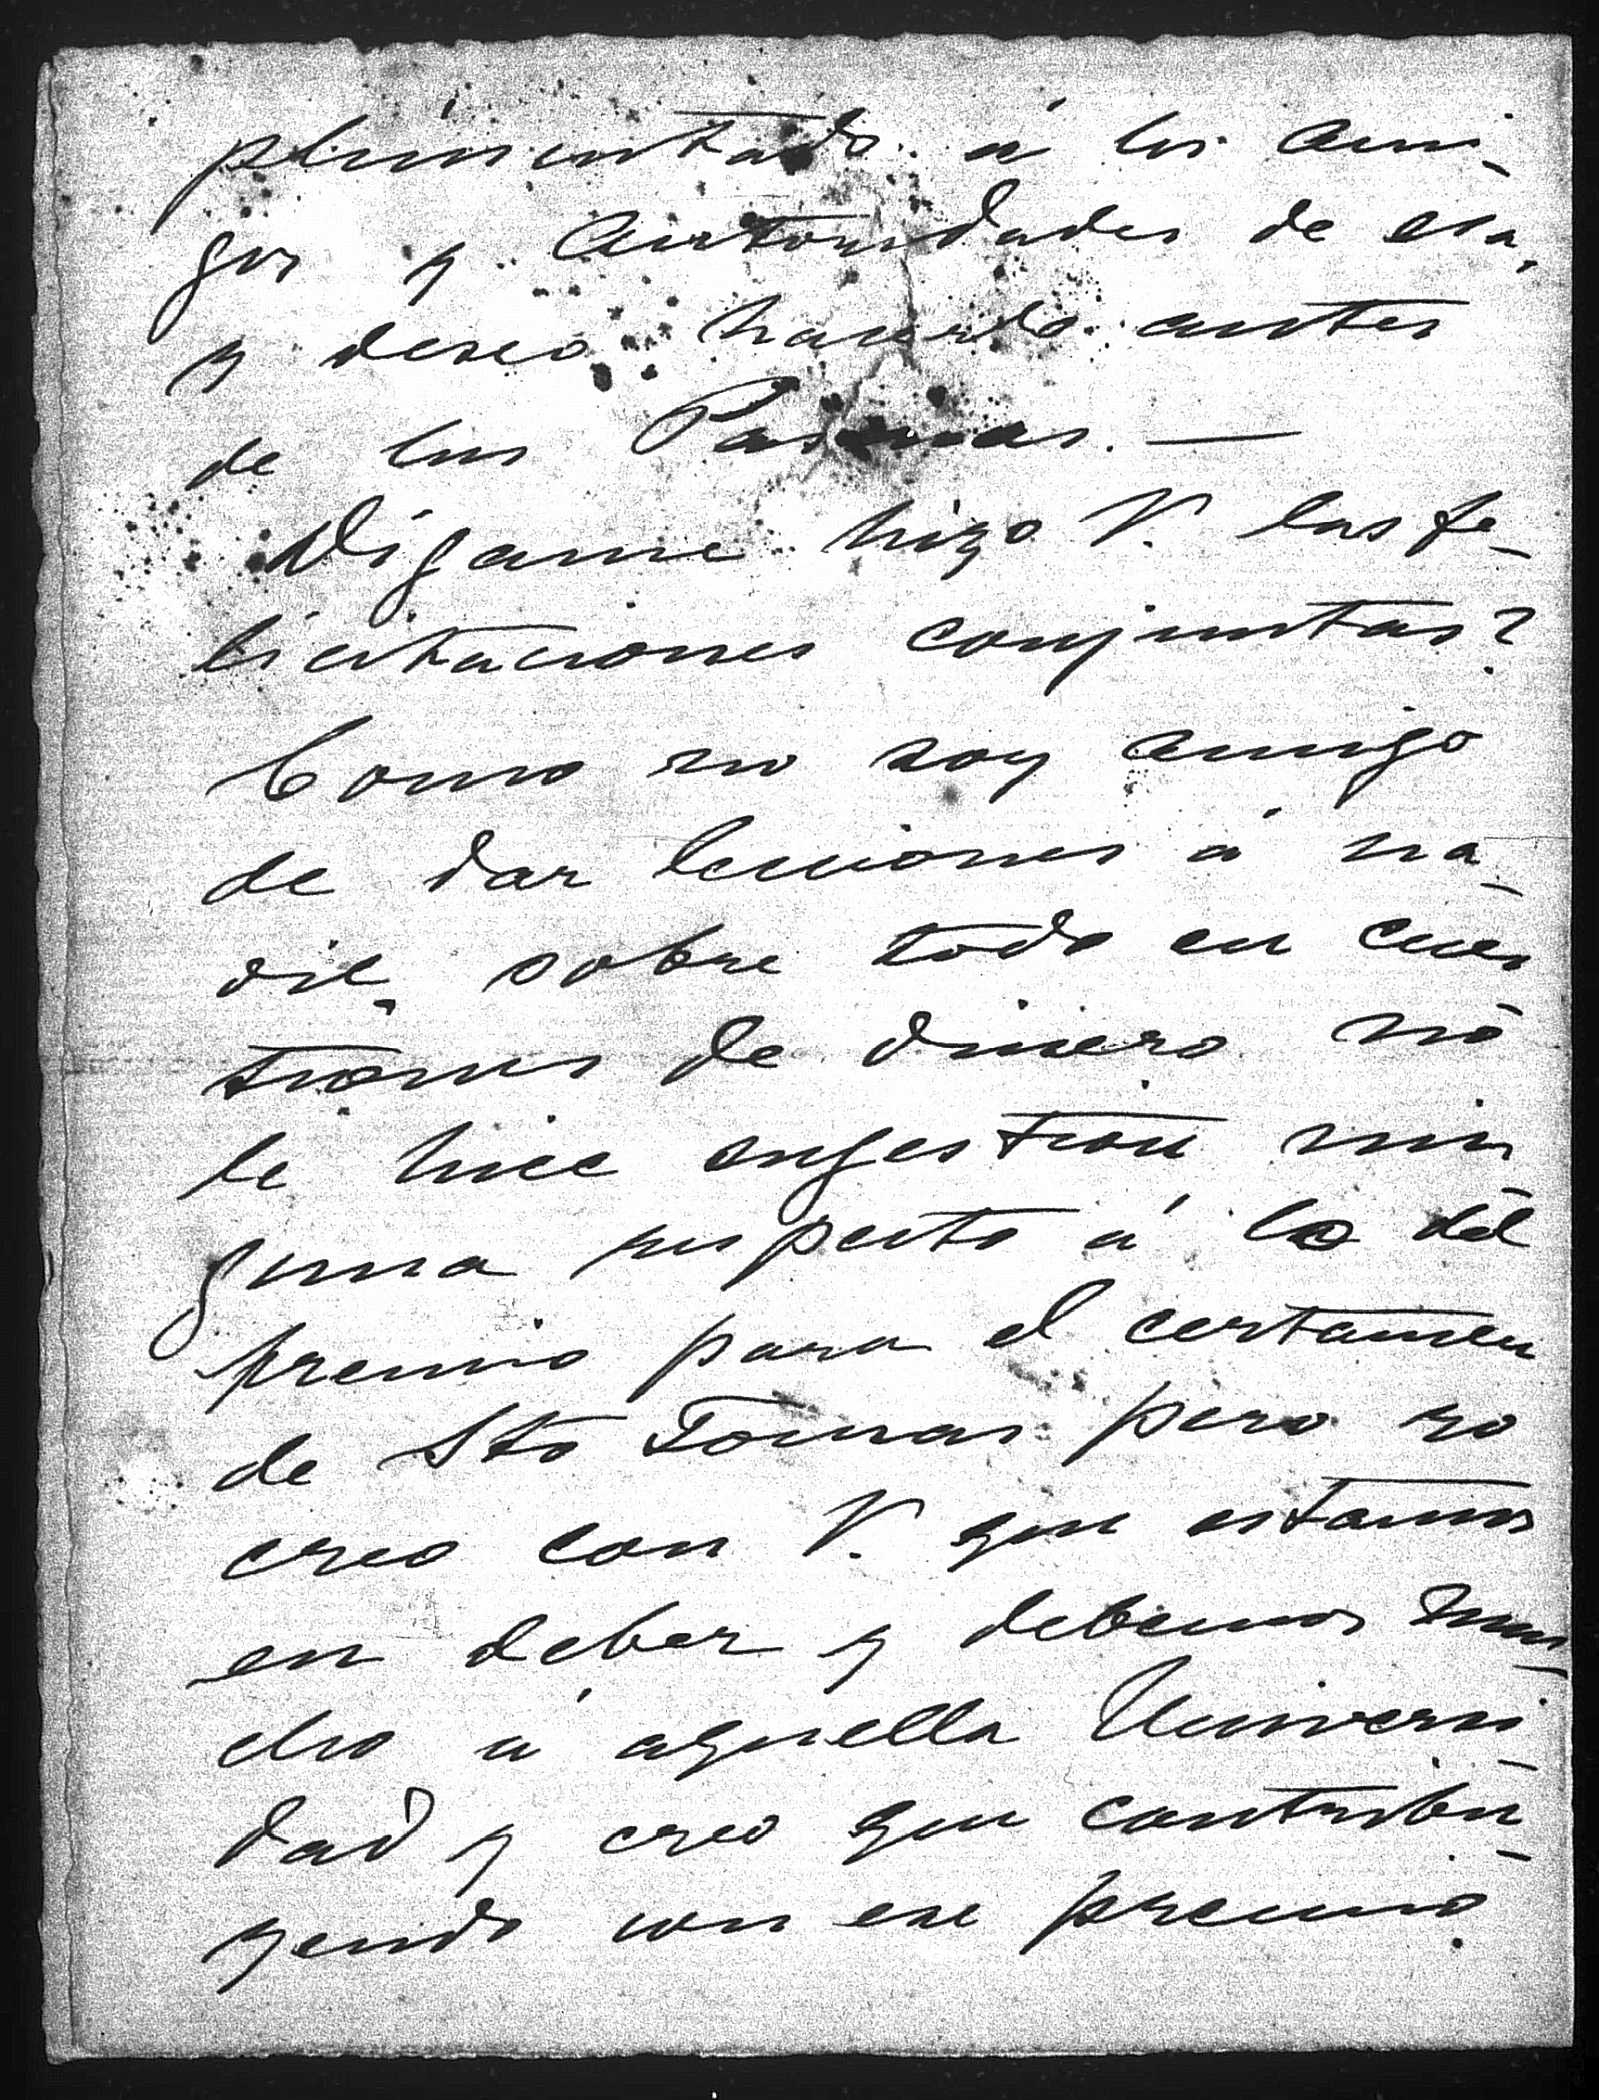 plimentado á los ami-
gos y Autoridades de esa,
y deseo hacerlo antes
de las Pascuas. —
Digame hizo V. las fe-
licitaciones conjuntas?
Como no soy amigo
de dar lecciones á na-
die, sobre todo en cues
tiones de dinero no
le hice sugestion nin
guna respecto á lo del
premio para el certamen
de Sto Tomas pero yo
creo con V. que estamos
en deber y debemos mu-
cho á aquella Universi-
dad y creo que contribu-
yendo con ese premio